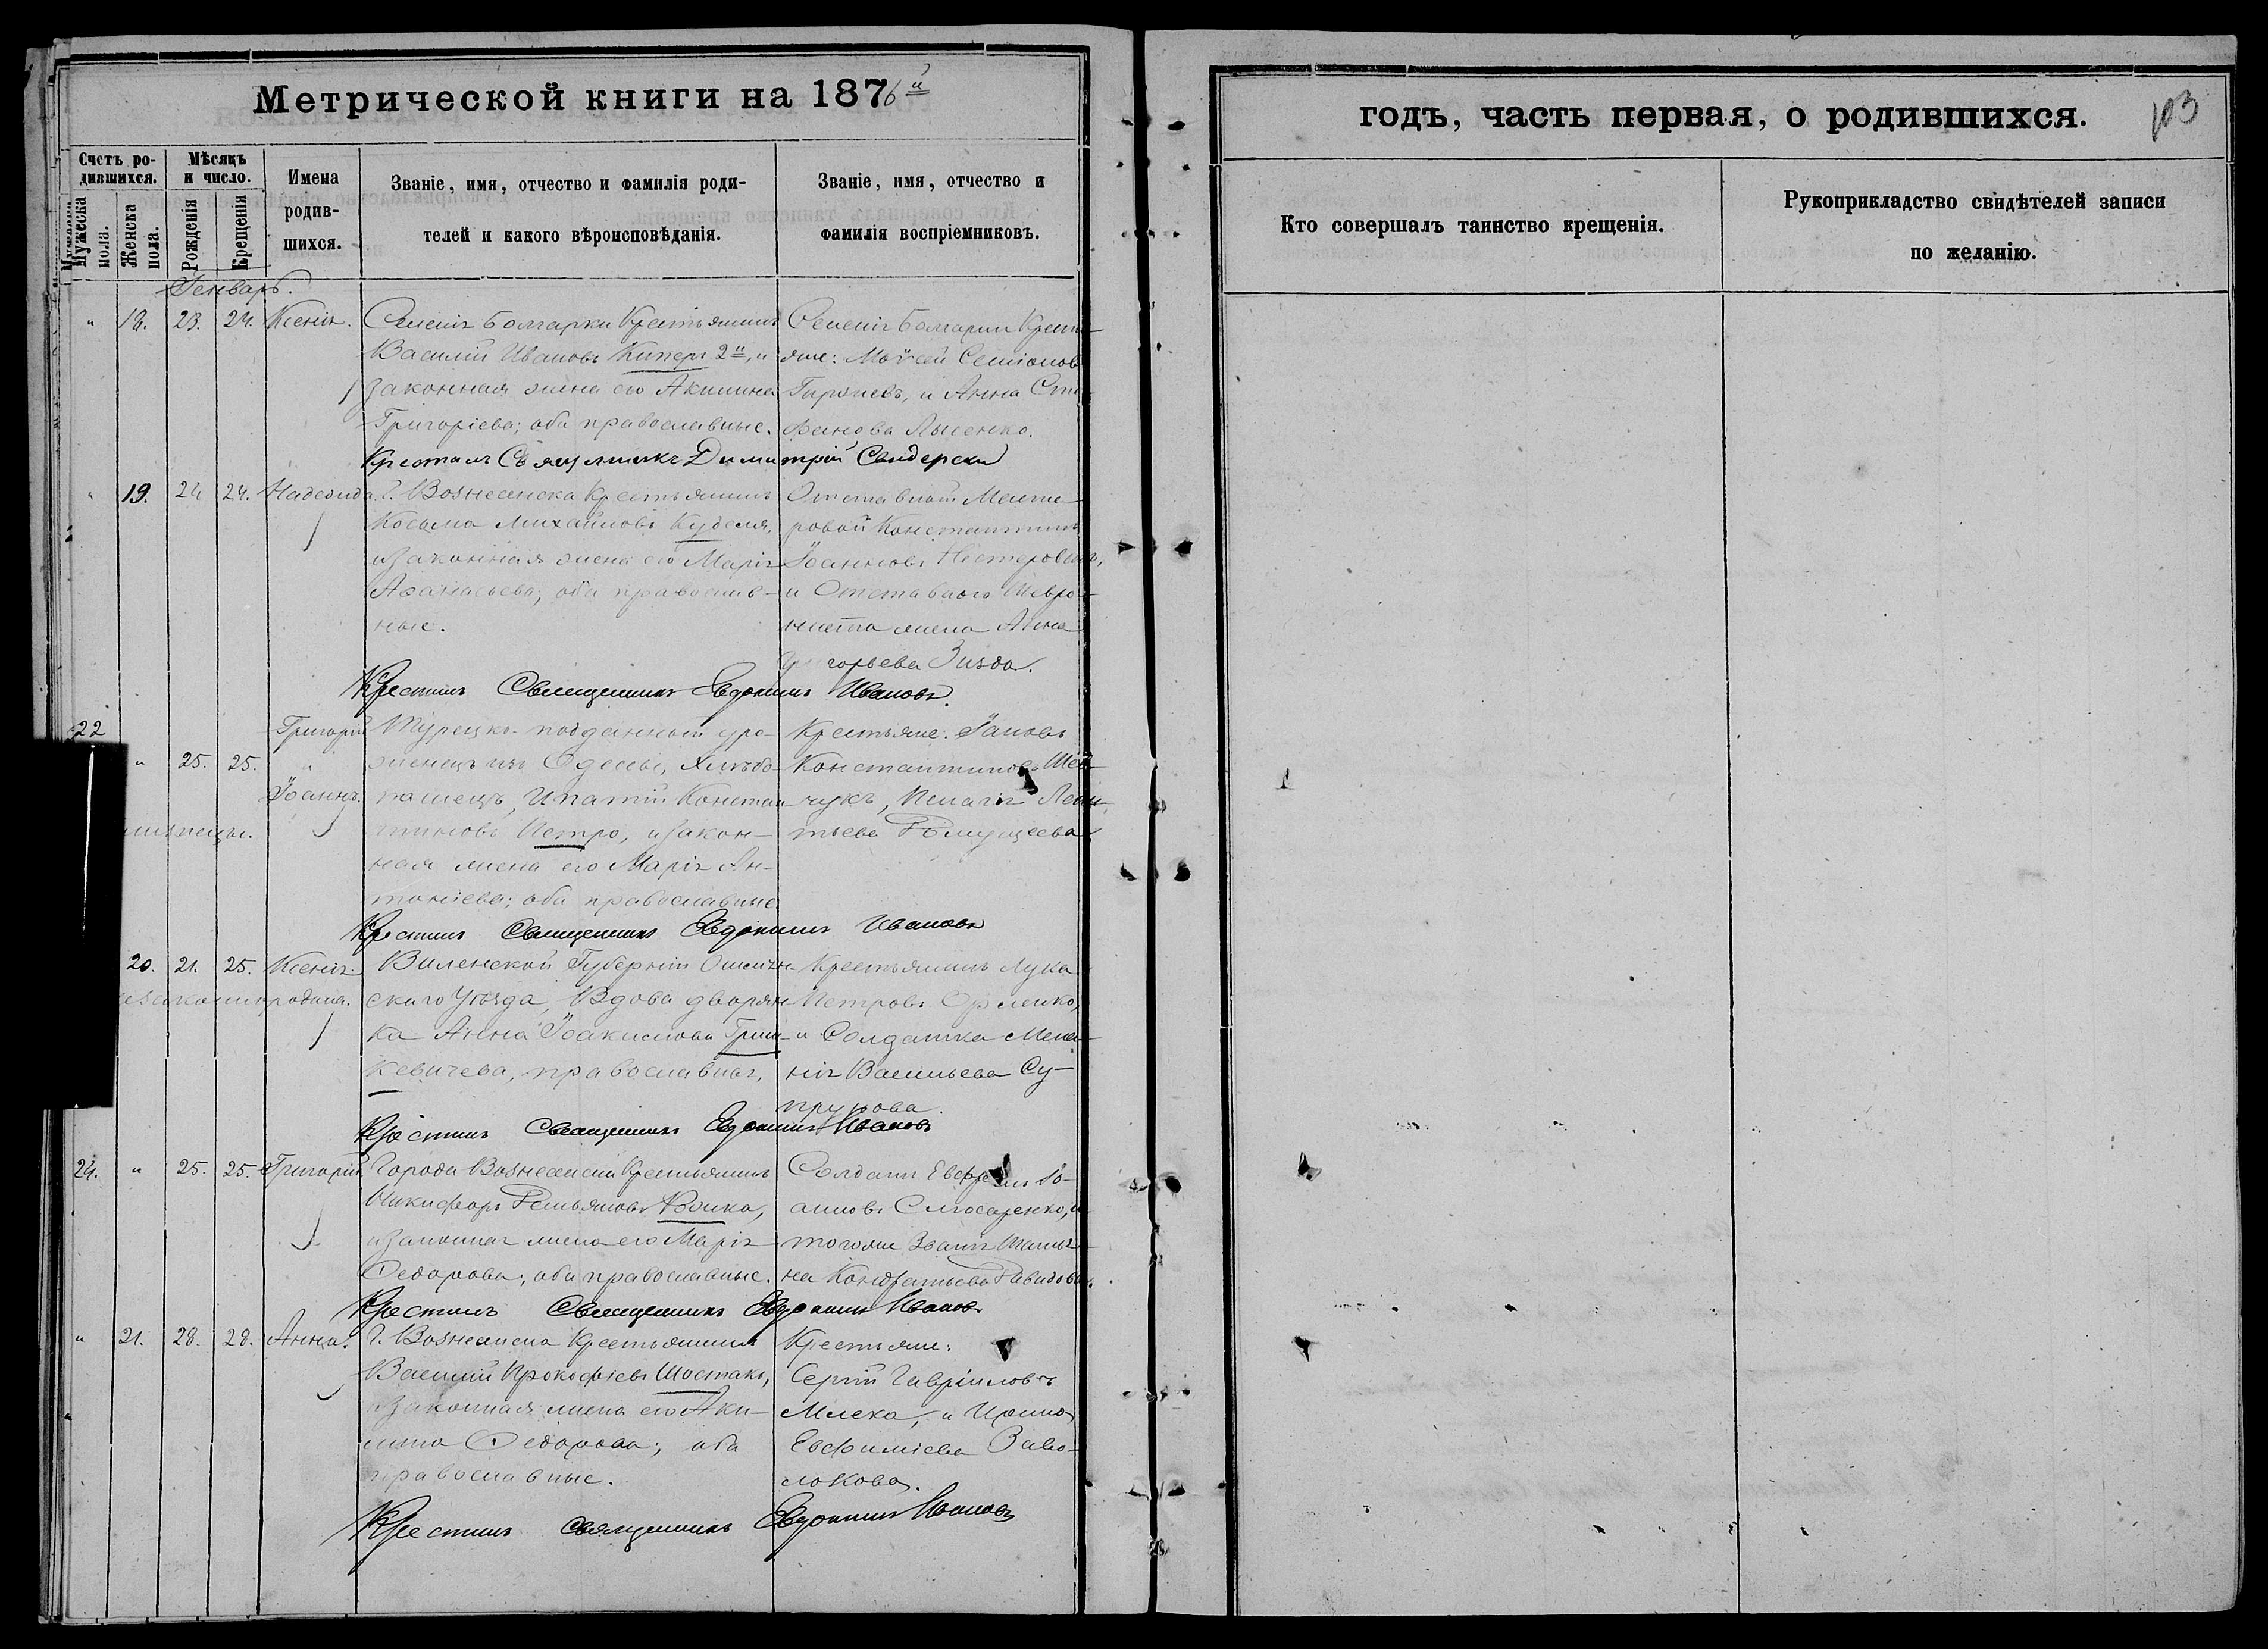 Метрической книги на 1876й
годъ, часть первая, о родившихся.
103
Счетъ ро-
дившихся.
Мужеска
пола.
Женска
пола.
Мѣсяцъ
и число.
Рожденія
Крещенія
Имена
родив-
шихся.
Званіе, имя, отчество и фамилія роди-
телей и какого вѣроисповѣданія.
Званіе, имя, отчество и
фамилія воспріемниковъ.
Кто совершалъ таинство крещенія.
Рукоприкладство свидѣтелей записи
по желанію.
Генварь.
" 18. 23. 24. Ксенія.
Селенія Болгарки Крестьянинъ
Василій Ивановъ Киперъ 2й, и
законная жена его Акилина
Григоріева; оба православные.
Селенія Болгарки Кресть-
яне: Моѵсей
и Анна Сте-
фанова Лысенко.
Крестилъ Священникъ Димитрій Свидерскій
" 19. 24 24. Надежда.
Г. Вознесенска Крестьянинъ
Косьма Михайловъ Куделя,
и законная жена его Марія
Аѳанасьева; оба православ-
ные.
Отставной
Константинъ
Іоанновъ Нестеровичъ,
и Отставного
жена Анна
Григорьева
Крестилъ Священникъ Евдокимъ Ивановъ.
22 " 25. 25. Григорій
"
Іоаннъ.
близнецы.
Турецко-подданный уро-
женецъ изъ Одессы, Хлѣбо-
пашецъ, Ипатій Констан-
тиновъ Петро, и закон-
ная жена его Марія Ан-
тоніева; оба православные.
Крестьяне:
Константиновъ Шев-
чукъ, Пелагія Леон-
тьева
Крестилъ Священникъ Евдокимъ Ивановъ
20. 21. 25. Ксенія.
незаконнорождена.
Виленской Губерніи Ошмян-
скаго Уѣзда, Вдова дворян-
ка Анна Іоакимова Гринь-
кевичева, православная,
Крестьянинъ Лука
Петровъ Орленко,
и Солдатка Мела-
нія Васильева Су-
прунова.
Крестилъ Священникъ Евдокимъ Ивановъ
24. " 25. 25. Григорій
Города Вознесенска Крестьянинъ
Никифоръ Демьяновъ Войко,
и законная жена его Марія
Ѳедорова; оба православные.
Солдатъ Евфремъ Іо-
анновъ Слюсаренко, и
тогоже званія Татья-
на Кондратьева Давидова.
Крестилъ Священникъ Евдокимъ Ивановъ
" 21. 28. 28. Анна.
Г. Вознесенска Крестьянинъ
Василій Прокофіевъ Шостакъ,
и законная жена его Аки-
лина Ѳедорова; оба
православные.
Крестьяне:
Сергій Гавріиловъ
Млека, и Ирина
Евфиміева Заво-
локова.
Крестилъ Священникъ Евдокимъ Ивановъ